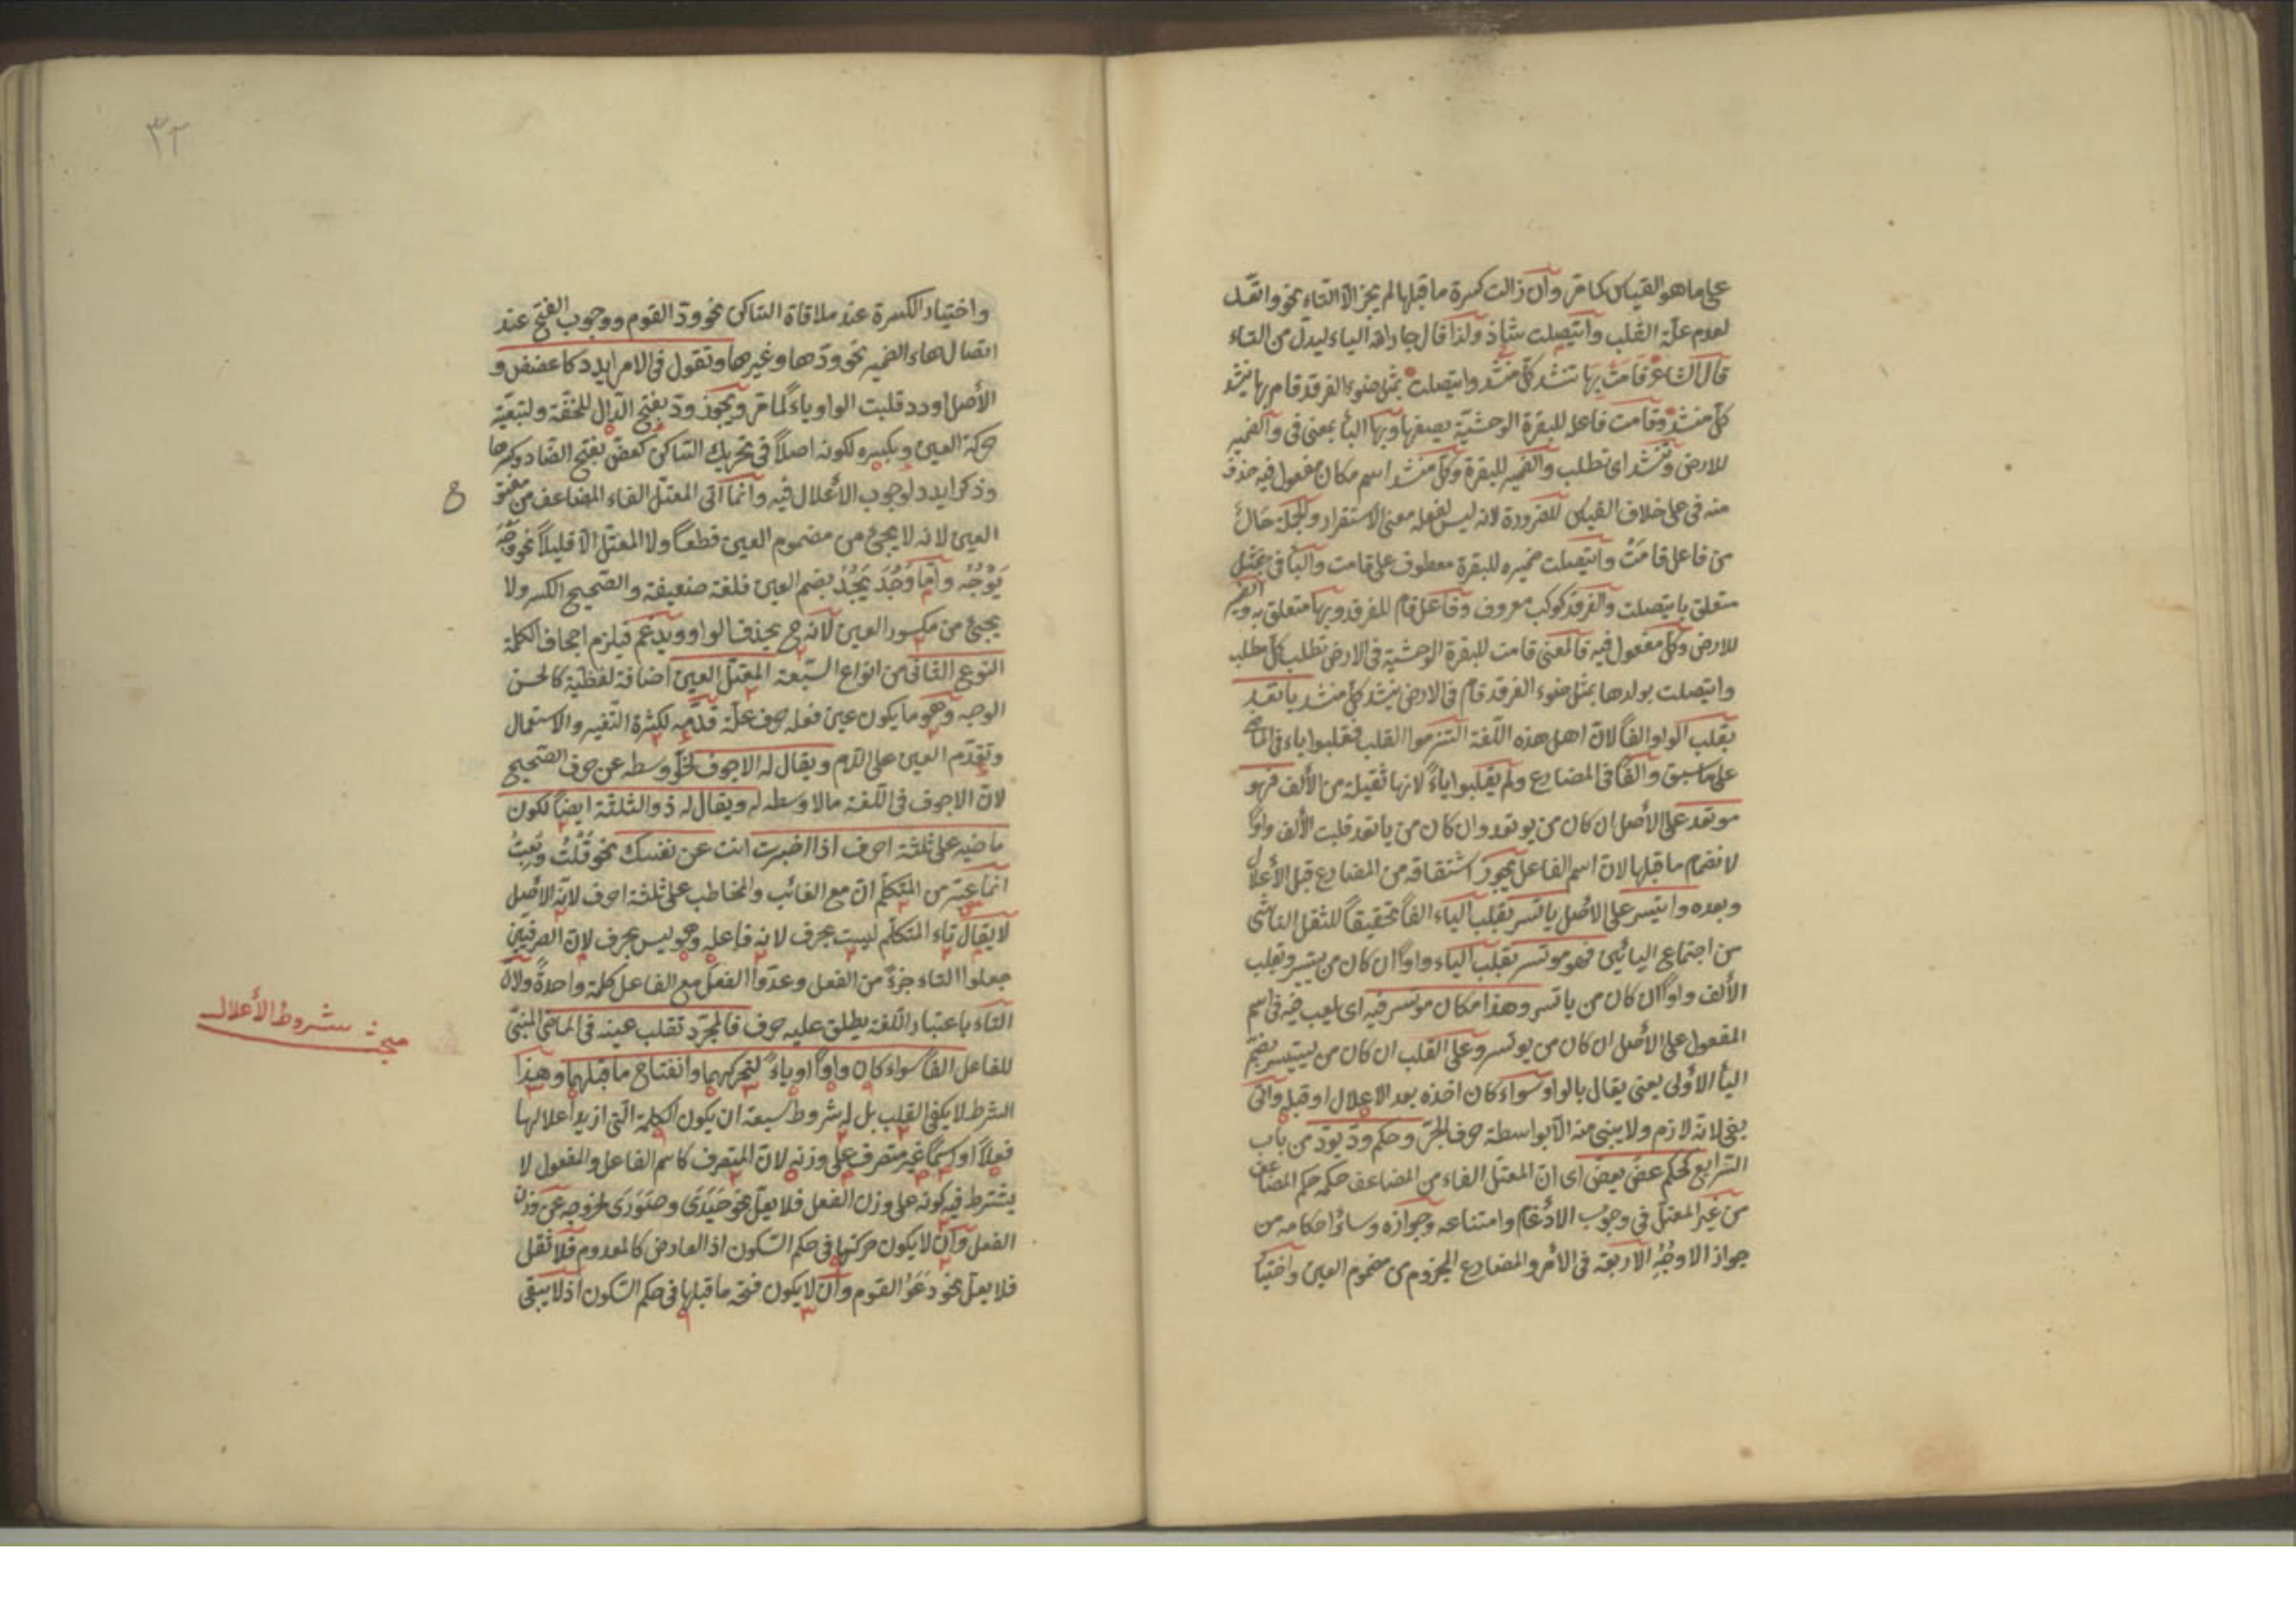 على ما هو القياس كما مرّ وأن زالت كسرة ما قبلها لم يجز الّا التاء نحو واتّعد
لعدم علّة القلب وايتصلت شاذ ولذا قال جار الله الياء ليدل من التاء
قال الشاعر قامتْ بها تنشد كلّ منشد وايتصلت بمثل ضوء الفرقد قام بها ينشد
كلّ منشد وقامت فاعله للبقرة الوحشيّة يصفها وبها البأ بمعنى فى والضمير
للارض وتنشد اى تطلب والضمير للبقرة وكلّ منشد اسم مكان مفعول فيه حذف
منه فى على خلاف القياس للضرورة لانه ليس لفعله معنى الاستقرار والجملة حالٌ
من فاعل قامتْ وايتصلت ضميره للبقرة معطوف على قامت والبأ فى بمثل
متعلق بايتصلت والفرقد كوكب معروف وفاعل قام للفرقد وبها متعلق به والضمير
للارض وكلّ مفعول فيه فالمعنى قامت للبقرة الوحشية فى الارض تطلب كلّ مطلب
وايتصلت بولدها بمثل ضوء الفرقد قام فى الارض ينشد كلّ منشد ياتعد
بقلب الواو الفاً لانّ اهل هذه اللّغة التزموا القلب فقلبوا ياء فى الماضى
على ما سبق والفاً فى المضارع ولم يقلبوا ياءً لانها ثقيلة من الألف فهو
موتعد على الأصل ان كان من يوتعد وان كان من ياتعد قلبت الألف واوًا
لانضمام ما قبلها لانّ اسم الفاعل يجوز اشتقاقه من المضارع قبل الأعلال
وبعده وايتسر على الاصل ياتسر بقلب الياء الفاً تخفيفاً للثقل الناشى
من اجتماع اليائين فهو موتسر بقلب الياء واوًا ان كان من ييتسر وتقلب
الألف واوًا ان كان من ياتسر وهذا مكان موتسر فيه اى يلعب فيه فى اسم
المفعول على الأصل ان كان من يوتسر وعلى القلب ان كان من ييتسر بضمّ
اليأ الأولى يعنى يقال بالواو سواء كان اخذه بعد الاعلال او قبله واتى
بفى لانّه لازم ولا يبنى منه الّا بواسطة حرف الجرّ وحكم ودّ يودّ من باب
الرابع كحكم عضّ يعضّ اى انّ المعتلّ الفاء من المضاعف حكمه حكم المضاعف
من غير المعتلّ فى وجوب الادغام وامتناعه وجوازه وسائر احكامه من
جواز الاوجُهِ الاربعة فى الأمر والمضارع المجزوم من مضموم العين واختيا
٣٢
واختيار الكسرة عند ملاقاة الساكن نحو ودّ القوم ووجوب الفتح عند
اتصال هاء الضمير نحو ودّها وغيرها وتقول فى الامر ايدد كاعضض و
الأصل اودد قلبت الواو ياءً لما مرّ ويجوز ودّ بفتح الدال للخفّة ولتبعيّة
حركة العين وبكسره لكونه اصلاً فى تحريك الساكن كعضّ بفتح الضاد وكسرها
وذكر ايدد لوجوب الأعلال فيه وانّما اتى المعتلّ الفاء المضاعف من مفتوح
العين لانه لا يجئ من مضموم العين قطعاً ولا المعتلّ الّا قليلاً نحو وَجُهَ
يَوْجُهُ وأمّا وَجَدَ يَجُدُ بضم العين فلغة ضعيفة والصّحيح الكسر ولا
يجئ من مكسور العين لانّه ح يحذف الواو ويدغم فيلزم اجحاف الكلمة
النوع الثانى من انواع السّبعة المعتلّ العين اضافة لفظيّة كالحسن
الوجه وهو ما يكون عين فعله حرف علّة قدّمه لكثرة التّغيير والاستعمال
وتقدّم العين على اللام ويقال له الاجوف لخلوّ وسطه عن حرف الصّحيح
لانّ الاجوف فى اللّغة مالا وسطه له ويقال له ذو الثلثة ايضاً لكون
ماضيه على ثلثة احرف اذا اخبرت انت عن نفسك نحو قُلْتُ وبِعْتُ
انّما عبّر من المتكلّم انّ مع الغائب والمخاطب على ثلثة احرف لانّه الاصل
لا يقال تاء المتكلّم ليست بحرف لانه فاعله وهو ليس بحرف لانّ الصرفيين
جعلوا التاء جزءً من الفعل وعدّوا الفعل مع الفاعل كلمة واحدةً ولانّ
التاء باعتبار اللّغة يطلق عليه حرف فالمجرّد تقلب عينه فى الماضى المبنىّ
للفاعل الفاً سواء كان واوًا او ياءً لتحركهما وانفتاح ما قبلهما وهذا
الشرط لا يكفى القلب بل له شروط سبعة ان يكون الكلمة الّتى ازيد اعلالها
فعلاً او اسمًا غير متصرف على وزنه لانّ المتصرف كاسم الفاعل والمفعول لا
يشترط فيه كونه على وزن الفعل فلا يعلّ نحو حَيَدَى وصَوَرَى لخروجه عن وزن
الفعل وان لا يكون حركتها فى حكم السّكون اذ العارض كالمعدوم فلا ثقل
فلا يعلّ نحو دَعَوُا القوم وان لا يكون فتحة ما قبلها فى حكم السّكون اذ لا يبقى
مبحث شروط الأعلال